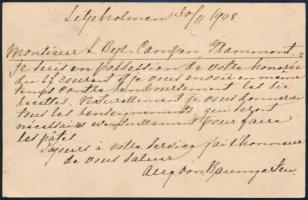 Liljeholmen 30/11 1908
Monsieur A. Byl-Campen Grammont.
Je suis en possession de votre honorée
du 27 courant et je vous envoie en même
temps contre remboursement les six
recettes. Naturellement je vous donnerai
tous les renseignements, qui seront
nécessaires éventuellement pour faire
les pâtes.
Toujours à votre service j'ai l'honneur
de vous saluer
Aug von Baumgarten